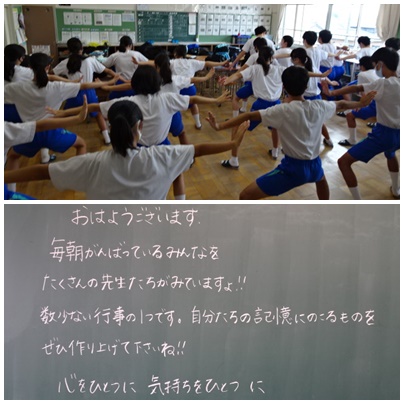 おはようございます.
毎朝がんばっているみんなを
たくさんの先生たちがみていますよ!!
数少ない行事の1つです。自分たちの記憶にのこるものを
ぜひ作り上げて下さいね!!
心をひとつに 気持ちをひとつに